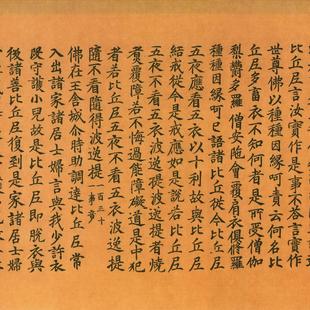 比丘尼言汝實作是事不答言實作
世尊佛以種種因緣呵責云何名比
丘尼多畜衣不知何者是所受僧伽
梨欝多羅僧安陁會覆肩衣俱修羅
種種因緣呵已語諸比丘從今比丘尼
五夜應看五衣以十利故與比丘尼
結戒從今是戒應如是說若比丘尼
五夜不看五衣波逸提波逸提者燒
煮覆障若不悔過能障礙道是中犯
者若比丘尼五夜不看五衣波逸提
隨不看隨得波逸提 百三十一事竟
佛在王舍城尒時助調達比丘尼常
入出諸家諸居士婦言與我少許衣
段守護小兒故是比丘尼即脫衣與
後諸善比丘尼復到是家諸居士婦